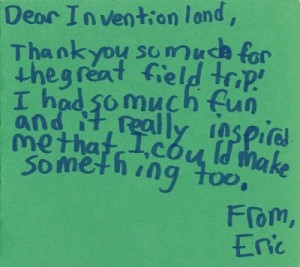 Dear Inventionland,
Thank you so much for
the great field trip!
I had so much fun
and it really inspired
me that I could make
something too.
From,
Eric